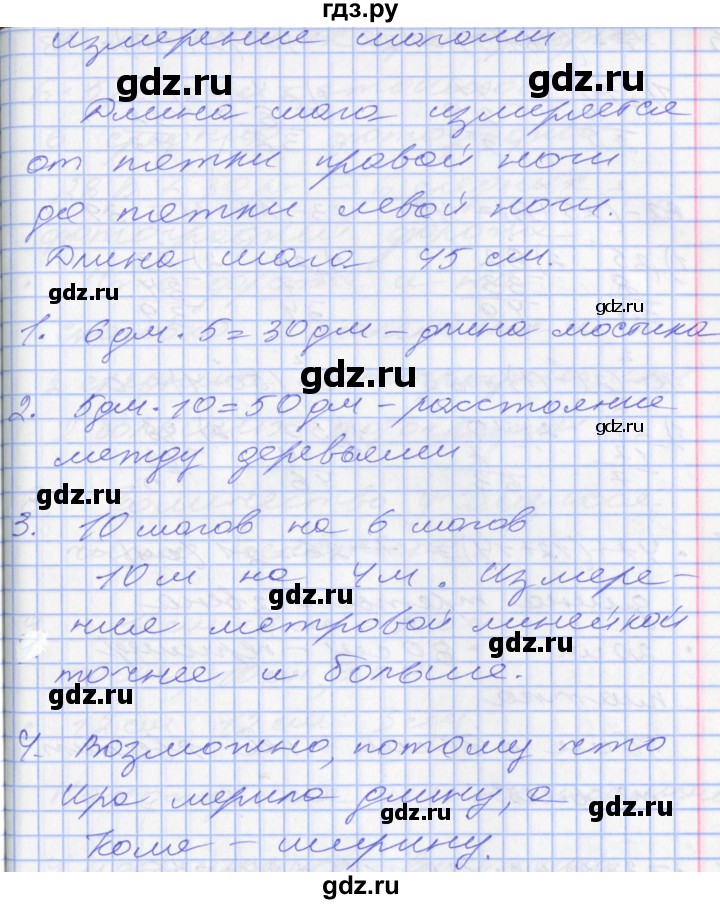 гдз.ру
Измерение шагами
gdz.ru gdz.ru
Длина шага измеряется
от пятки правой ноги
до пятки левой ноги.
Длина шага 45 см.
gdz.ru
gdz.ru
1. 6 дм · 5 = 30 дм – длина мостика
gdz.ru
2. 5 дм · 10 = 50 дм – расстояние
gdz.ru
между деревьями
gdz.ru gdz.ru
3. 10 шагов на 6 шагов
10 м на 4 м. Измере-
gdz.ru
ния метровой линейкой
gdz.ru
точнее и больше.
gdz.ru
4. Возможно, потому что
Ира мерила длину, а
gdz.ru gdz.ru
Коля – ширину.
gdz.ru
гдз.ру